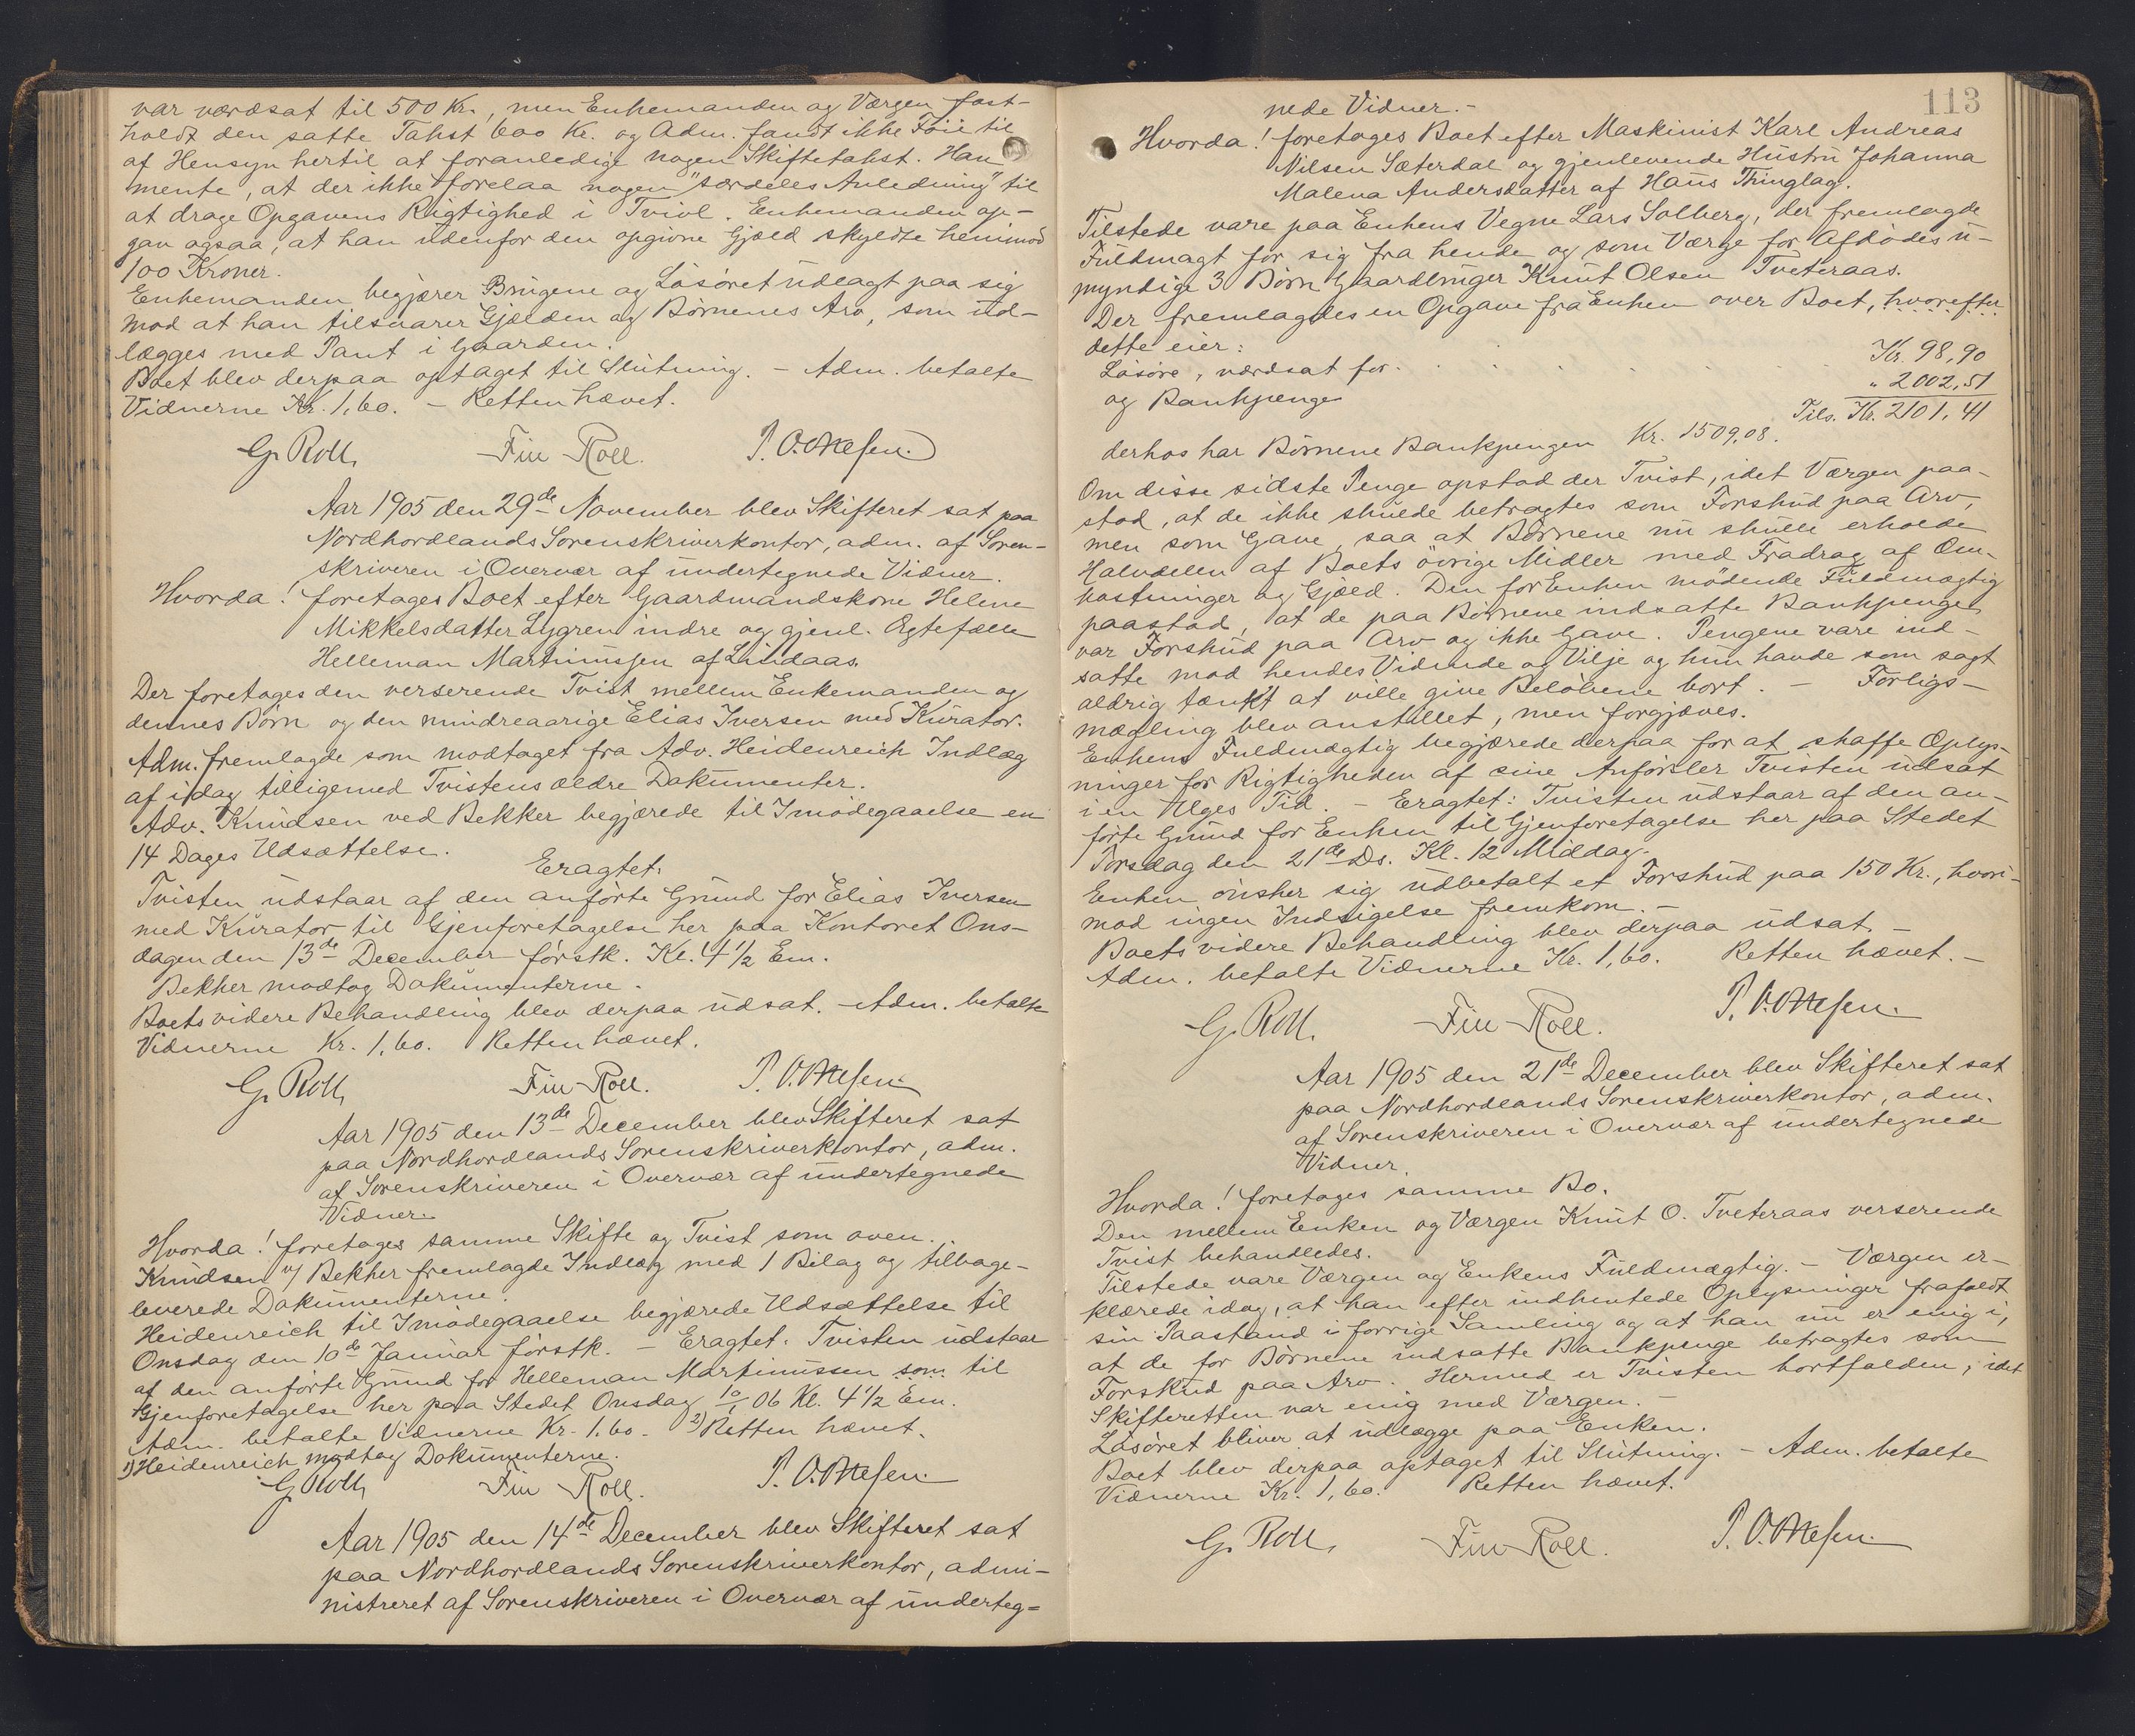 var værdsat til 500 Kr., men Enkemanden og Værgen fast-
holdt den satte Takst 600 Kr. og Adm. fandt ikke Föie til
af Hensyn hertil at foranledige nogen Skiftetakst. Han
mente, at der ikke forelaa nogen "særdeles Anledning" til
at drage Opgavens Rigtighed i Tvivl. Enkemanden op-
gav ogsaa, at han udenfor den opgivne Gjæld skyldte henimod
100 Kroner.
Enkemanden begjærer Brugene og Lösöret udlagt paa sig
mod at han tilsvarer Gjælden og Börnenes Arv, som ud-
lægges med Pant i Gaarden.
Boet blev derpaa optaget til Slutning. - Adm. betalte
Vidnerne Kr. 1,60. - Retten hævet.
G. Roll. Finn Roll. P. O. Mefsen.
Aar 1905 den 29de November blev Skifteret sat paa
Nordhordlands Sorenskriverkontor, adm. af Soren-
skriveren i Overvær af undertegnede Vidner.
Hvorda! foretages Boet efter Gaardmandskone Helene
Mikkelsdatter Lygren indre og gjenl. Ægtefælle
Helleman Martinussen af Lindaas.
Der foretages den verserende Tvist mellem Enkemanden og
dennes Börn og den mindreaarige Elias Iversen med Kurator.
Adm. fremlagde som modtaget fra Adv. Heidenreich Indlæg
af idag tilligemed Tvistens ældre Dokumenter.
Adv. Knudsen ved Bekker begjærede til Imödegaaelse en
14 Dages Udsættelse.
Eragtet:
Tvisten udstaar af den anförte Grund for Elias Iversen
med Kurator til Gjenforetagelse her paa Kontoret Ons-
dagen den 13de December förstk. Kl. 4 1/2 Em.
Bekker modtog Dokumenterne.
Boets videre Behandling blev derpaa udsat. - Adm. betalte
Vidnerne Kr. 1,60. Retten hævet.
G. Roll. Finn Roll. P. O. Mefsen.
Aar 1905 den 13de December blev Skifteret sat
paa Nordhordlands Sorenskriverkontor, adm.
af Sorenskriveren i Overvær af undertegnede
Vidner.
Hvorda! foretages samme Skifte og Tvist som oven.
Knudsen v/ Bekker fremlagde Indlæg med 1 Bilag og tilbage-
leverede Dokumenterne.
Heidenreich til Imödegaaelse begjærede Udsættelse til
Onsdag den 10de Januar förstk. - Eragtet: Tvisten udstaar
af den anförte Grund for Helleman Martinussen som til
Gjenforetagelse her paa Stedet Onsdag 10/1 06 Kl. 4 1/2 Em.
Adm. betalte Vidnerne Kr. 1.60. 2) Retten hævet.
1) Heidenreich modtog Dokumenterne.
G. Roll. Finn Roll. P. O. Mefsen.
Aar 1905 den 14de December blev Skifteret sat
paa Nordhordlands Sorenskriverkontor, admi-
nistreret af Sorenskriveren i Overvær af underteg-
113
nede Vidner. -
Hvorda! foretages Boet efter Maskinist Karl Andreas
Nilsen Sæterdal og gjenlevende Hustru Johanna
Malena Andersdatter af Haus Thinglag.
Tilstede vare paa Enkens Vegne Lars Solberg, der fremlagde
Fuldmagt for sig fra hende og som Værge for Afdödes u-
myndige 3 Börn Gaardbruger Knut Olsen Tveteraas.
Der fremlagdes en Opgave fra Enken over Boet, hvorefter
dette eier:
Lösöre, værdsat for . . . . . . . Kr. 98,90
og Bankpenge " 2002,51
Tils. Kr. 2101,41
derhos har Börnene Bankpengen Kr. 1509.08.
Om disse sidste Penge opstod der Tvist, idet Værgen paa-
stod, at de ikke skulde betragtes som Forskud paa Arv,
men som Gave, saa at Börnene nu skulle erholde
Halvdelen af Boets övrige Midler med Fradrag af Om-
kostninger og Gjæld. Den for Enken mödende Fuldmægtig
paastod, at de paa Börnene indsatte Bankpenge
var Forskud paa Arv og ikke Gave. Pengene vare ind-
satte mod hendes Vidende og Vilje og hun havde som sagt
aldrig tænkt at ville give Belöbene bort. - Forligs-
mægling blev anstillet, men forgjæves.
Enkens Fuldmægtig begjærede derpaa for at skaffe Oplys-
ninger for Rigtigheden af sine Anförsler Tvisten udsat
i en Uges Tid. - Eragtet: Tvisten udstaar af den an-
förte Grund for Enken til Gjenforetagelse her paa Stedet
Torsdag den 21de Ds. Kl. 12 Middag.
Enken önsker sig udbetalt et Forskud paa 150 Kr., hvori-
mod ingen Indsigelse fremkom. -
Boets videre Behandling blev derpaa udsat. -
Adm. betalte Vidnerne Kr. 1,60. Retten hævet. -
G. Roll. Finn Roll. P. O. Mefsen.
Aar 1905 den 21de December blev Skifteret sat
paa Nordhordlands Sorenskriverkontor, adm.
af Sorenskriveren i Overvær af undertegnede
Vidner.
Hvorda! foretages samme Bo.
Den mellem Enken og Værgen Knut O. Tveteraas verserende
Tvist behandledes.
Tilstede vare Værgen og Enkens Fuldmægtig. - Værgen er-
klærede idag, at han efter indhentede Oplysninger frafaldt
sin Paastand i forrige Samling og at han nu er enig i,
at de for Börnene indsatte Bankpenge betragtes som
Forskud paa Arv. Hermed er Tvisten bortfalden, idet
Skifteretten var enig med Værgen.
Lösöret bliver at udlægge paa Enken.
Boet blev derpaa optaget til Slutning. - Adm. betalte
Vidnerne Kr. 1,60. Retten hævet.
G. Roll. Finn Roll. P. O. Mefsen.